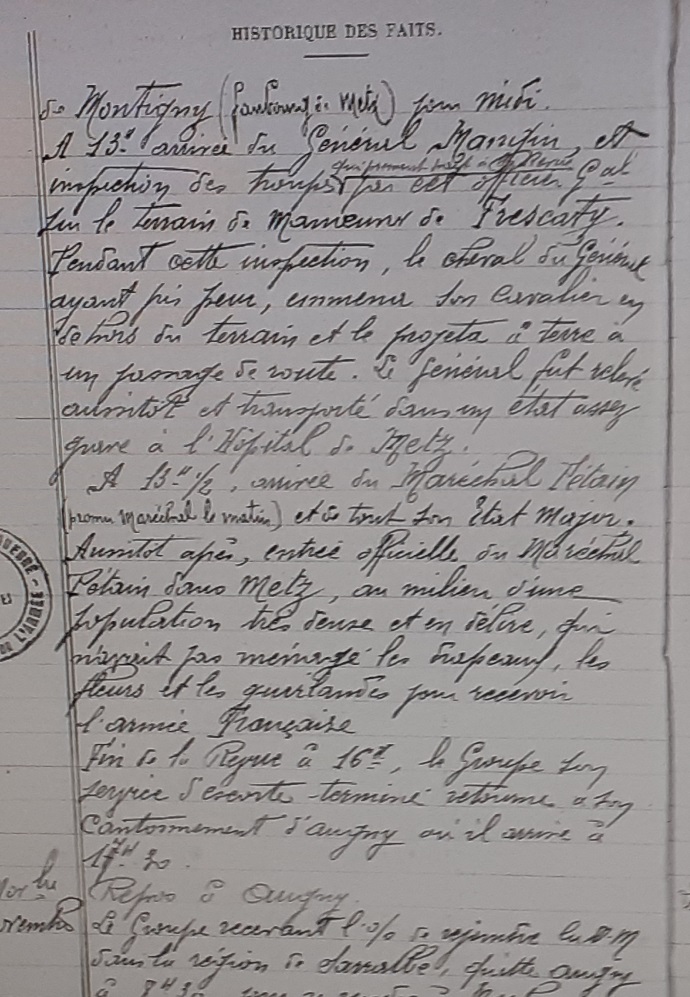 HISTORIQUE DES FAITS.
de Montigny (faubourg de Metz) pour midi.
A 13h arrivée du Général Mangin, et
qui prennent part à la Revue
inspection des troupes par cet officier Gal
sur le terrain de manoeuvre de Frescaty.
Pendant cette inspection, le cheval du Général
ayant pris peur, emmena son cavalier en
dehors du terrain et le projeta à terre à
un passage de route. Le Général fut relevé
aussitôt et transporté dans un état assez
grave à l'Hôpital de Metz.
A 13h 1/2, arrivée du Maréchal Pétain
(promu Maréchal le matin) et de tout son Etat Major.
Aussitot après, entrée officielle du Maréchal
Pétain dans Metz, au milieu d'une
population très dense et en délire, qui
n'avait pas ménagé les drapeaux, les
fleurs et les guirlandes pour recevoir
l'armée Française
Fin de la Revue à 16h, le Groupe son
service d'escorte terminé retourne à son
cantonnement d'Augny où il arrive à
17h 30.
Repos à Augny.
Le Groupe recevant l'o/ de rejoindre la D.M
dans la région de Sarralbe, quitte Augny
à 8h30
GUERRE
DE L'ARMÉE